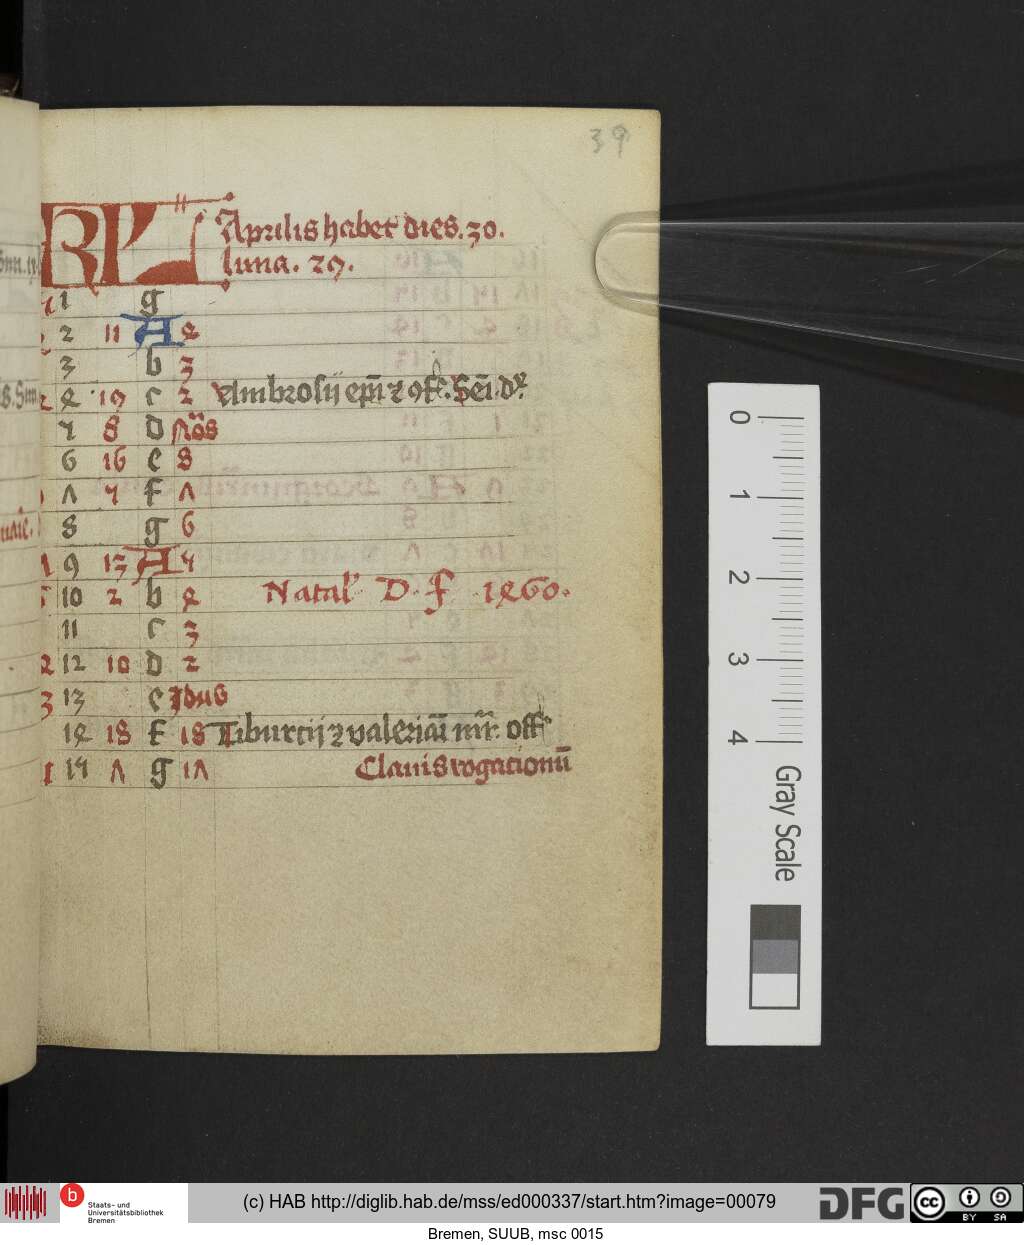 39
KL Aprilis habet dies. 30.
luna. 29.
1 g
2 11 A 4
3 b 3
4 19 c 2 Ambrosij ep̄i ⁊ ꝯf.
5 8 d Nōs
6 16 e 8
7 5 f 7
8 g 6
9 13 A 5
10 2 b 4 Natal' D. f. 1460.
11 c 3
12 10 d 2
13 e Jdus
14 18 f 18 Tiburcij ⁊ valeriāi mr̄. off
15 7 g 17 Clauis rogationū
0 1 2 3 4
Gray Scale
b Staats- und
Universitätsbibliothek
Bremen
(c) HAB http://diglib.hab.de/mss/ed000337/start.htm?image=00079
DFG
cc BY SA
Bremen, SUUB, msc 0015